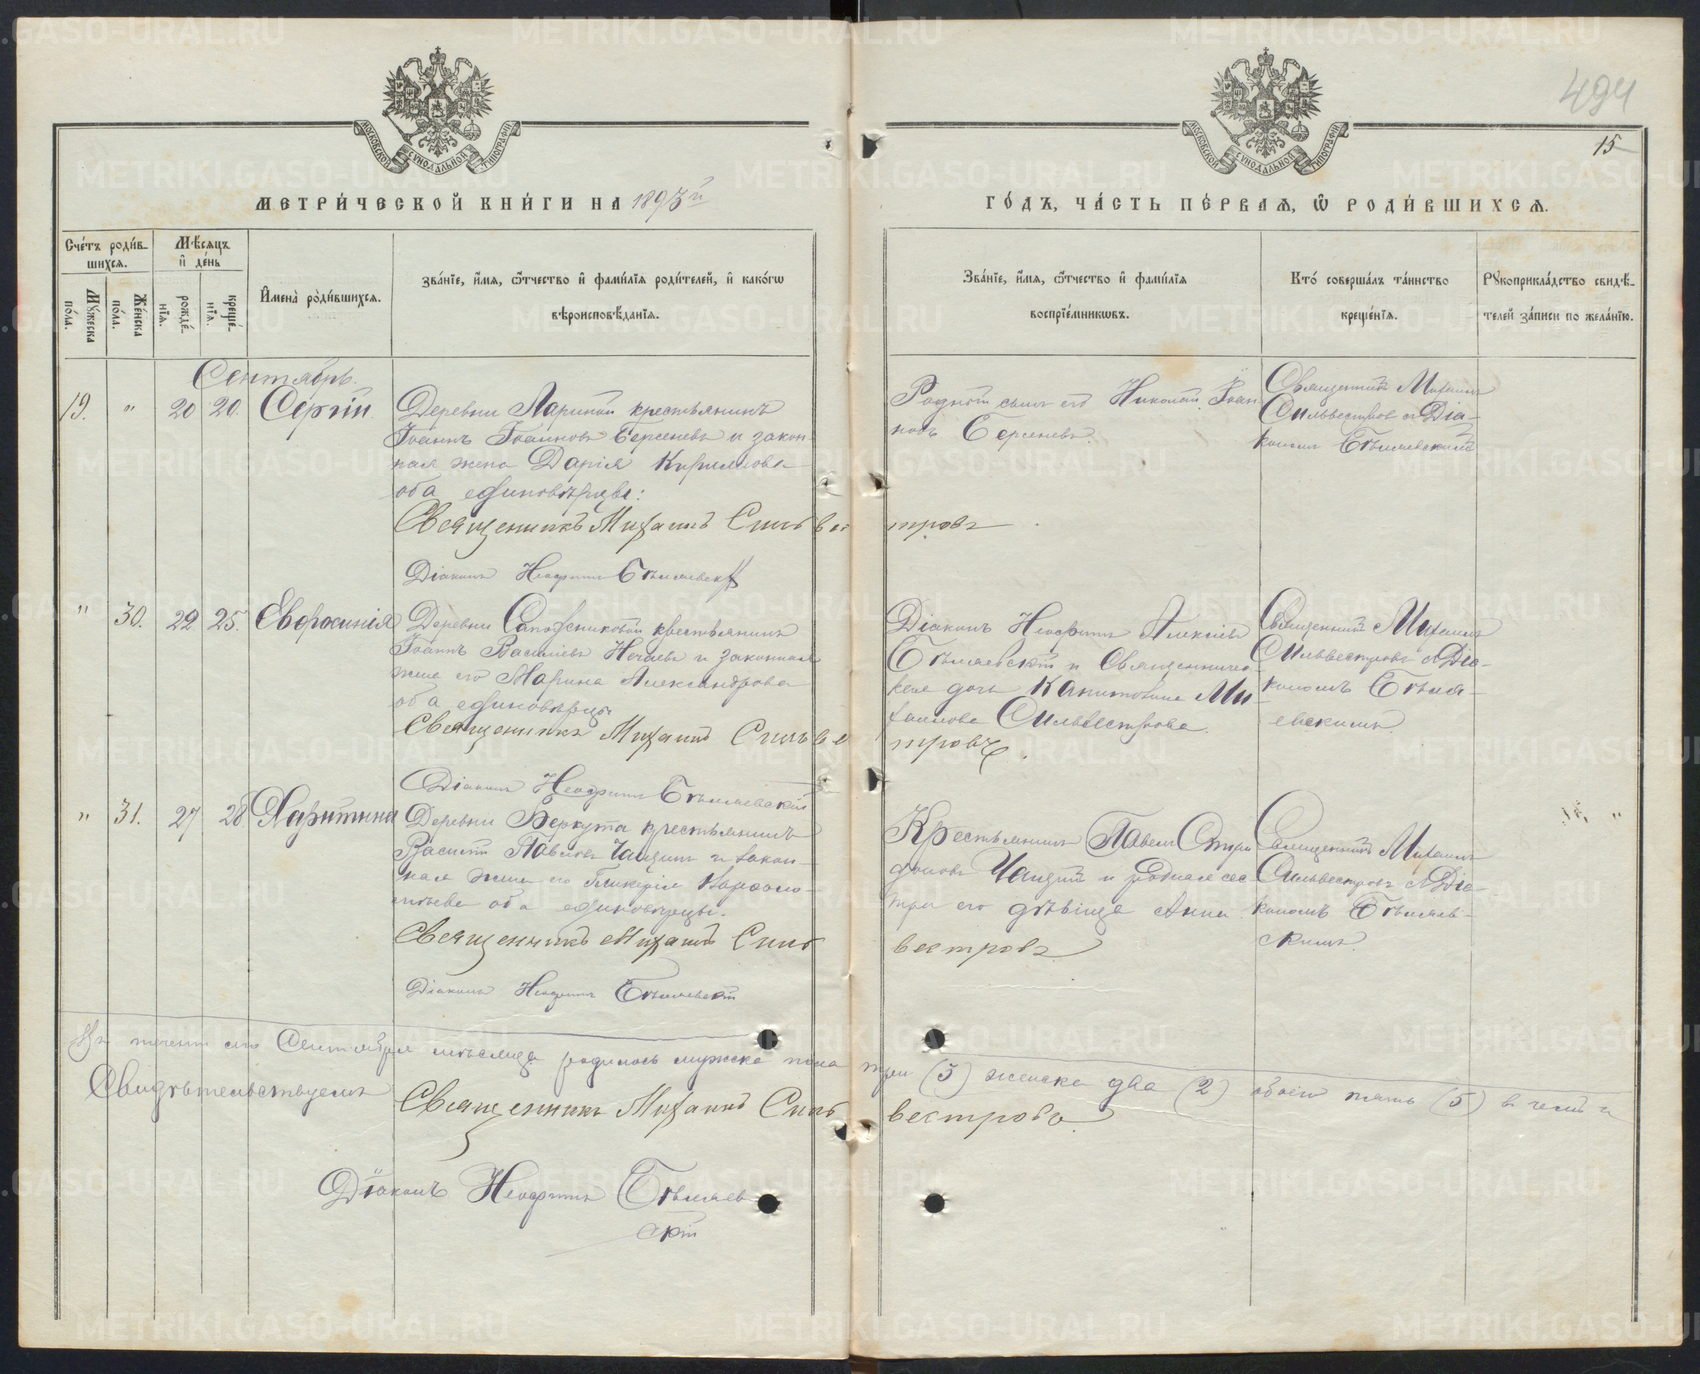 494
15
МЕТРИ́ЧЕСКОЙ КНИ́ГИ НА 1893й
ГО́ДЪ, ЧА́СТЬ ПЕ́РВАѦ, Ѡ РОДИ́ВШИХСѦ.
Сче́тъ роди́в-
шихсѧ.
Мѣсѧцъ
и де́нь
Мꙋ́жеска
по́ла.
Же́нска
по́ла.
рожде́-
нїѧ.
креще́-
нїѧ.
И҆мена̀ роди́вшихсѧ.
Зва́нїе, и҆́мѧ, ѻ҆́тчество и҆ фами́лїѧ роди́телей, и҆ како́гѡ
вѣроисповѣ́данїѧ.
Зва́нїе, и҆́мѧ, ѻ҆́тчество и҆ фами́лїѧ
воспрїе́мникѡвъ.
Кто̀ соверша́лъ та́инство
креще́нїѧ.
Рꙋкоприкла́дство свидѣ́-
телей за́писи по жела́нїю.
Сентябрь.
19. " 20 20. Сергій
Деревни Лариной крестьянинъ
Іоаннъ Іоанновъ Берсеневъ и закон-
ная жена Дарія Кириллова
оба единовѣрцы:
Священникъ Михаилъ Сильвестровъ
Діаконъ Неофитъ Бѣляевскій
Родной сынъ его Николай Іоан-
новъ Берсеневъ.
Священникъ Михаилъ
Сильвестровъ съ Діа-
кономъ Бѣляевскимъ
" 30. 22 25. Евфросинія
Деревни Сапожниковой крестьянинъ
Іоаннъ Василіевъ Нечаевъ и законная
жена его Марина Александрова
оба единовѣрцы
Священникъ Михаилъ Сильвестровъ
Діаконъ Неофитъ Бѣляевскій
Діаконъ Неофитъ Алексіевъ
Бѣляевскій и Священниче-
ская дочь Капитолина Ми-
хаилова Сильвестрова.
Священникъ Михаилъ
Сильвестровъ съ Діа-
кономъ Бѣля-
евскимъ
" 31. 27 28 Харитина
Деревни Беркута крестьянинъ
Василій Павловъ Чащинъ и закон-
ная жена его Гликерія Варфоло-
меева оба единовѣрцы.
Священникъ Михаилъ Сильвестровъ
Діаконъ Неофитъ Бѣляевскій
Крестьянинъ Павелъ
и родная сес-
тра его дѣвица Анна
Священникъ Михаилъ
Сильвестровъ съ Діа-
кономъ Бѣляев-
скимъ.
Въ теченіи Сентября мѣсяца родилось мужска пола три (3) женска два (2) обоего пять (5) въ чемъ и
Свидѣтельствуемъ
Священникъ Михаилъ Сильвестровъ.
Діаконъ Неофитъ Бѣляев-
скій